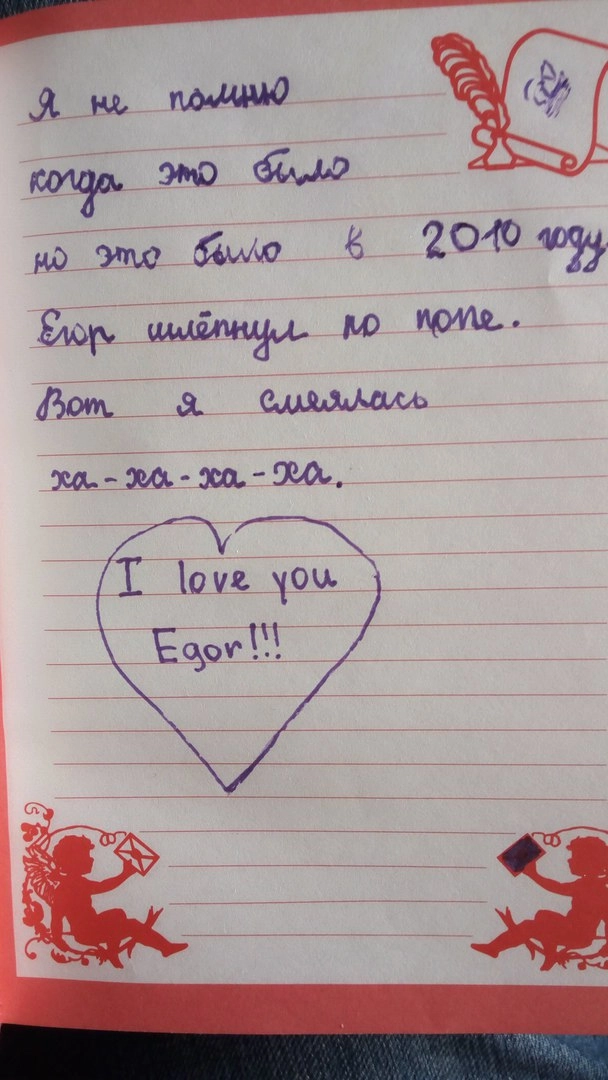 Я не помню
когда это было
но это было в 2010 году
Егор шлёпнул по попе.
Вот я смеялась
ха-ха-ха-ха.
I love you
Egor!!!